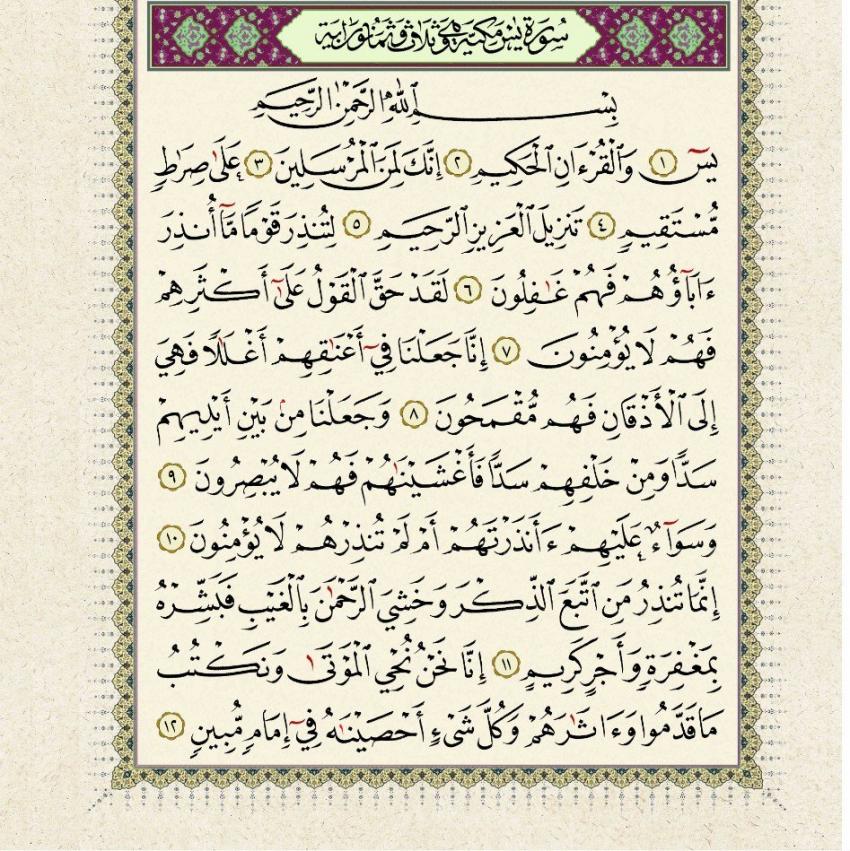 سُورَةُ يسٓ مَكِّيَّة وَهِيَ ثَلَاثٌ وَثَمَنُونَ ءَايَة
بِسْمِ ٱللَّهِ ٱلرَّحْمَٰنِ ٱلرَّحِيمِ
يسٓ ١ وَٱلْقُرْءَانِ ٱلْحَكِيمِ ٢ إِنَّكَ لَمِنَ ٱلْمُرْسَلِينَ ٣ عَلَىٰ صِرَٰطٍ
مُّسْتَقِيمٍ ٤ تَنزِيلَ ٱلْعَزِيزِ ٱلرَّحِيمِ ٥ لِتُنذِرَ قَوْمًا مَّآ أُنذِرَ
ءَابَآؤُهُمْ فَهُمْ غَٰفِلُونَ ٦ لَقَدْ حَقَّ ٱلْقَوْلُ عَلَىٰٓ أَكْثَرِهِمْ
فَهُمْ لَا يُؤْمِنُونَ ٧ إِنَّا جَعَلْنَا فِيٓ أَعْنَٰقِهِمْ أَغْلَٰلًا فَهِيَ
إِلَى ٱلْأَذْقَانِ فَهُم مُّقْمَحُونَ ٨ وَجَعَلْنَا مِنۢ بَيْنِ أَيْدِيهِمْ
سَدًّا وَمِنْ خَلْفِهِمْ سَدًّا فَأَغْشَيْنَٰهُمْ فَهُمْ لَا يُبْصِرُونَ ٩
وَسَوَآءٌ عَلَيْهِمْ ءَأَنذَرْتَهُمْ أَمْ لَمْ تُنذِرْهُمْ لَا يُؤْمِنُونَ ١٠
إِنَّمَا تُنذِرُ مَنِ ٱتَّبَعَ ٱلذِّكْرَ وَخَشِيَ ٱلرَّحْمَٰنَ بِٱلْغَيْبِ فَبَشِّرْهُ
بِمَغْفِرَةٍ وَأَجْرٍ كَرِيمٍ ١١ إِنَّا نَحْنُ نُحْيِ ٱلْمَوْتَىٰ وَنَكْتُبُ
مَا قَدَّمُوا وَءَاثَٰرَهُمْ وَكُلَّ شَيْءٍ أَحْصَيْنَٰهُ فِيٓ إِمَامٍ مُّبِينٍ ١٢